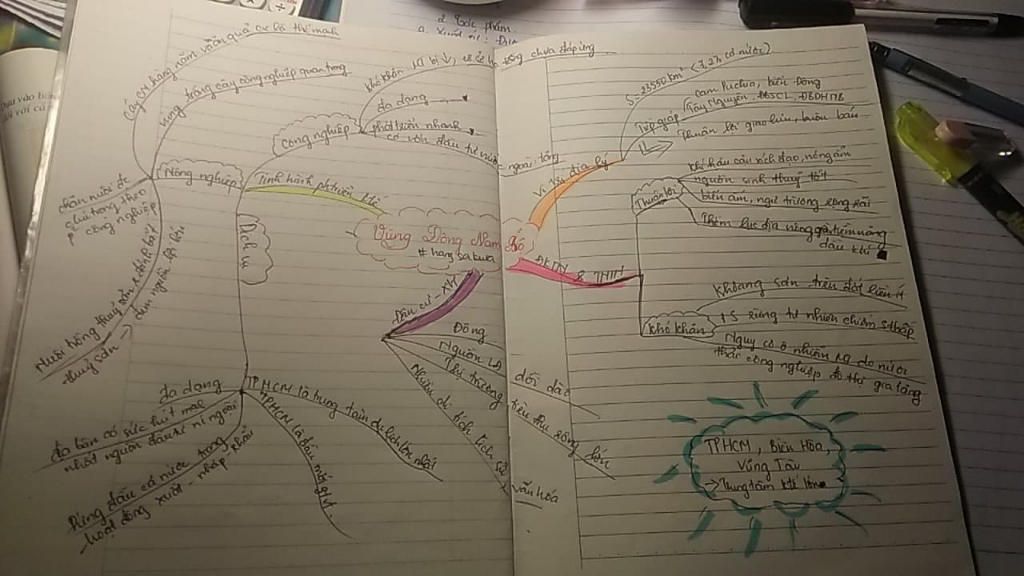 Vùng Đông Nam Bộ
# hang sa kura
Vị trí địa lý
S: 23550 km² (7,27 cả nước)
Tiếp giáp
Cam Puchia, biển Đông
Tây Nguyên, ĐBSCL, DBDHNTB
Thuận lợi giao lưu, buôn bán
ĐKTN & TNTN
Thuận lợi
Khí hậu cận xích đạo, nóng ẩm
nguồn sinh thuỷ tốt
biển ấm, ngư trường rộng lớn
Thềm lục địa nông giàu tiềm năng
dầu khí
Khó khăn
Khoáng sản trên đất liền ít
DS rừng tự nhiên chiếm % thấp
Nguy cơ ô nhiễm do nước
thải công nghiệp, đô thị gia tăng
TPHCM, Biên Hòa,
Vũng Tàu
→ Trung tâm KT lớn
Dân cư - XH
Đông
Nguồn LĐ dồi dào
Thị trường tiêu thụ rộng lớn
Nhiều di tích lịch sử văn hóa
Tình hình phát triển
Công nghiệp
chưa đáp ứng
đa dạng
phát triển nhanh
có vốn đầu tư nước ngoài tăng
Nông nghiệp
Cây CN hàng năm
thế mạnh
Vùng trồng cây công nghiệp quan trọng
chăn nuôi
chú trọng theo
công nghiệp
Nuôi trồng thuỷ sản, đánh bắt
thuỷ sản →
đem nguồn lợi lớn
Dịch vụ
đa dạng
địa bàn có sức hút mạnh
nhất nguồn đầu tư nước ngoài
Dẫn đầu cả nước trong
hoạt động xuất - nhập khẩu
TPHCM là trung tâm du lịch lớn nhất
TPHCM là đầu mối GTVT